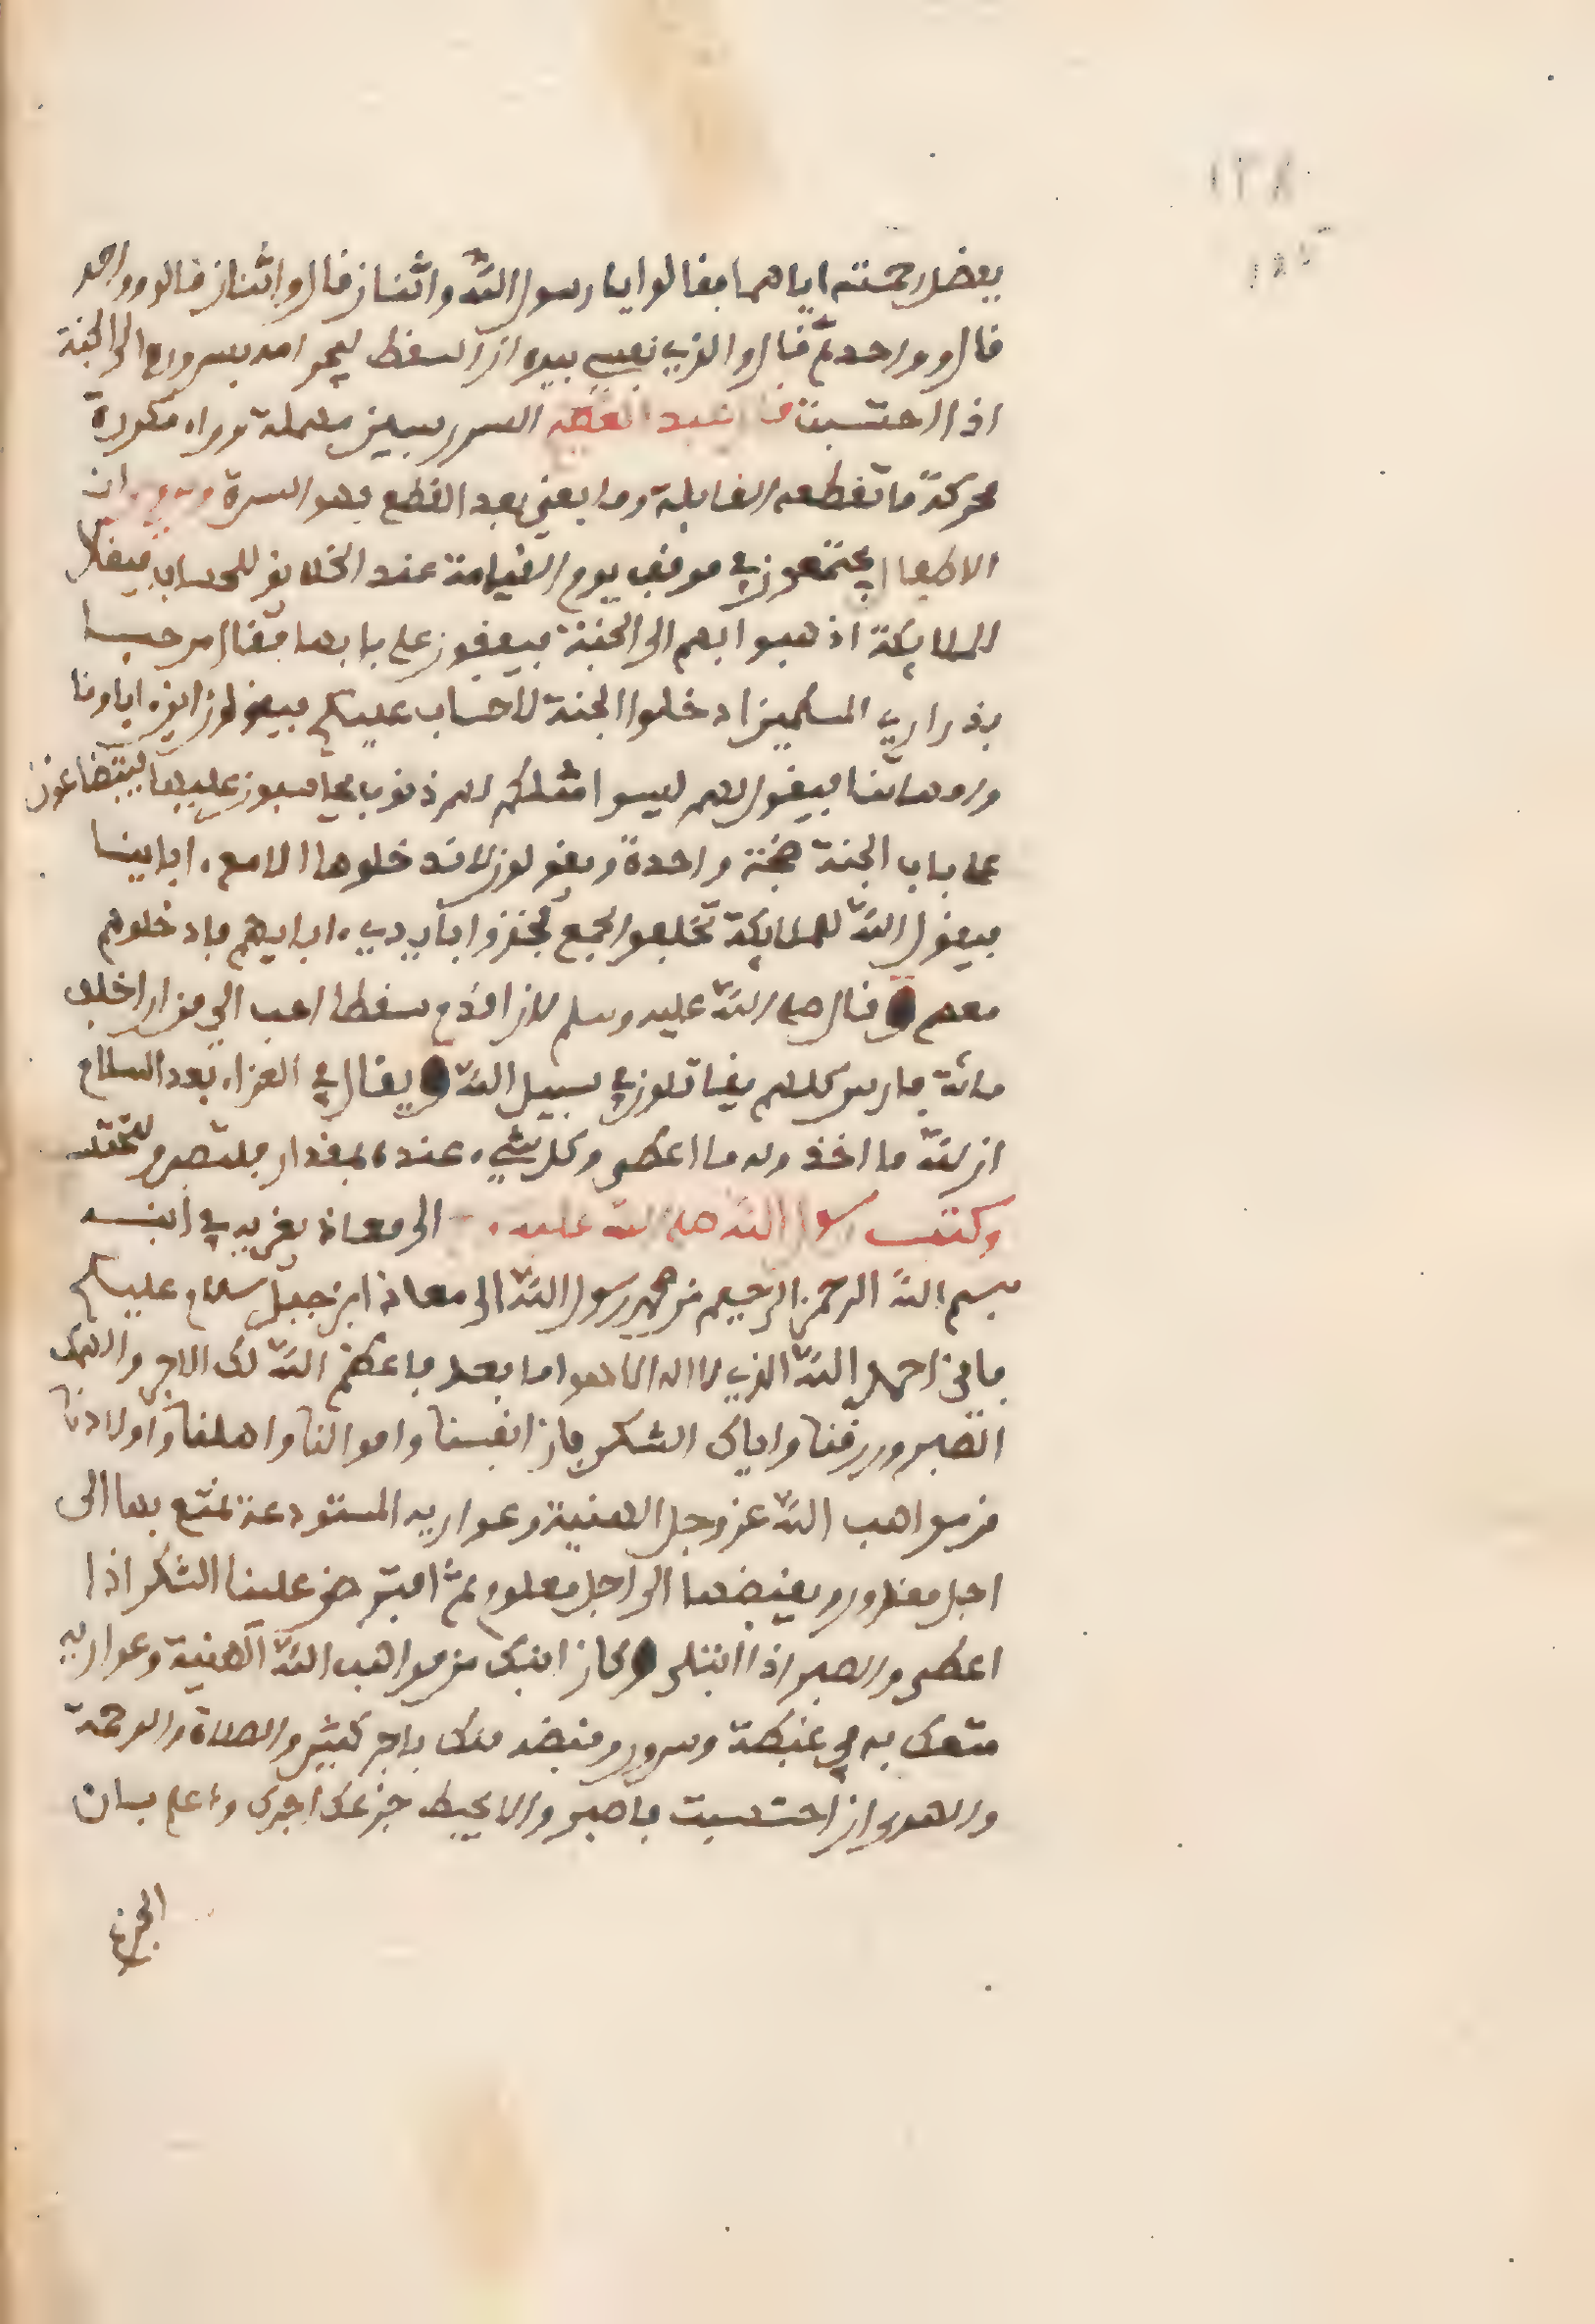 ١٣٨
بفضل رحمته اياهما فقالوا يا رسول الله واثنان قال واثنان قالوا وواحد
قال وواحد ثم قال والذي نفسي بيده ان السقط ليجر امه بسرره الى الجنة
اذا احتسبت السرر بسين مهملة وراء مكررة
محركة ما تقطعه القابلة وما بقي بعد القطع فهو السرة ان
الاطفال يجتمعون في موقف يوم القيامة عند الخلايق للحساب فيقال
للملايكة اذهبوا بهم الى الجنة فيقفون على بابها فيقال مرحبا
بذراري المسلمين ادخلوا الجنة لا حساب عليكم فيقولون اين اباونا
وامهاتنا فيقول لهم ليسوا مثلكم لهم ذنوب يحاسبون عليها فيتضاغون
على باب الجنة ضجة واحدة ويقولون لا ندخلوها الا مع ابائنا
فيقول الله للملايكة تخللوا الجمع فخذوا بايدي ابائهم فادخلوهم
معهم وقال صلى الله عليه وسلم لان اقدم سقطا احب الي من ان اخلف
مائة فارس كلهم يقاتلون في سبيل الله ويقال في العزاء بعد السلام
ان لله ما اخذ وله ما اعطى وكل شيء عنده بمقدار فلتصبر ولتحتسب
وكتب رسول الله صلى الله عليه الى معاذ يعزيه في ابنه
بسم الله الرحمن الرحيم من محمد رسول الله الى معاذ ابن جبل سلام عليكم
فاني احمد الله الذي لا اله الا هو اما بعد فاعظم الله لك الاجر والهمك
الصبر ورزقنا واياك الشكر فان انفسنا واموالنا واهلنا واولادنا
من مواهب الله عز وجل الهنية وعواريه المستودعة نمتع بها الى
اجل معدود ويقبضها الى اجل معلوم ثم افترض علينا الشكر اذا
اعطى والصبر اذا ابتلى وكان ابنك من مواهب الله الهنية وعواريه
متعك به في غبطة وسرور وقبضه منك باجر كثير والصلاة والرحمة
والهدى ان احتسبت فاصبر ولا يحبط جزعك اجرك واعلم بان
الجزع